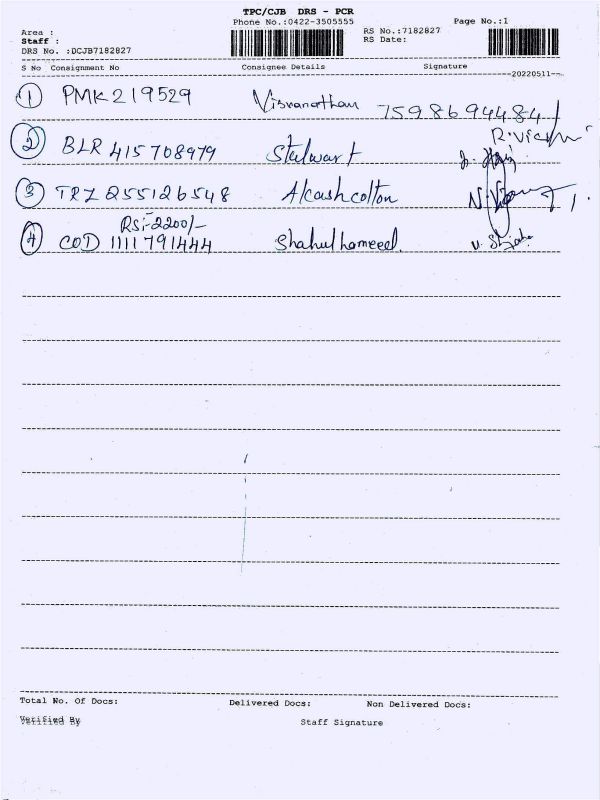 TPC/CJB DRS - PCR
Phone No.:0422-3505555 Page No.:1
Area : RS No.:7182827
Staff : RS Date:
DRS No. :DCJB7182827
S No Consignment No Consignee Details Signature
20220511
1 PMK219529 Visvanathan 7598694484
2 BLR 415708979 Stalwart
3 TRZ 255126548 Akashcolton
Rs:-2200/-
4 COD 1111791444 Shahulhameed
Total No. Of Docs: Delivered Docs: Non Delivered Docs:
Verified By Staff Signature